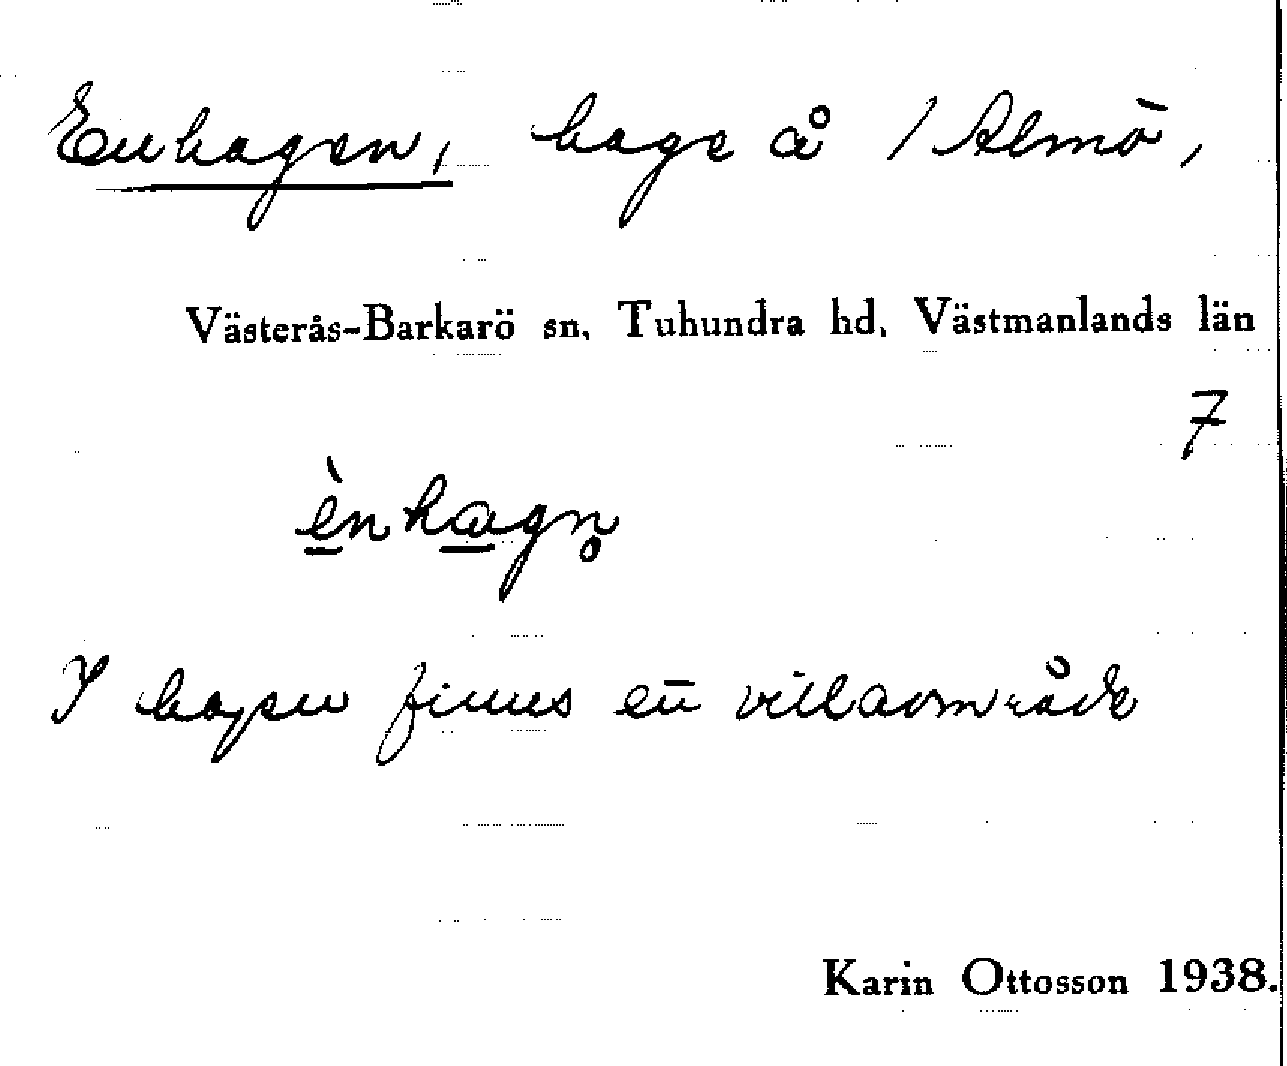 Enhagen, hage å / Almö,
Västerås-Barkarö sn. Tuhundra hd. Västmanlands län
7
ènhagn̥
I hagen finnes ett villaområde
Karin Ottosson 1938.